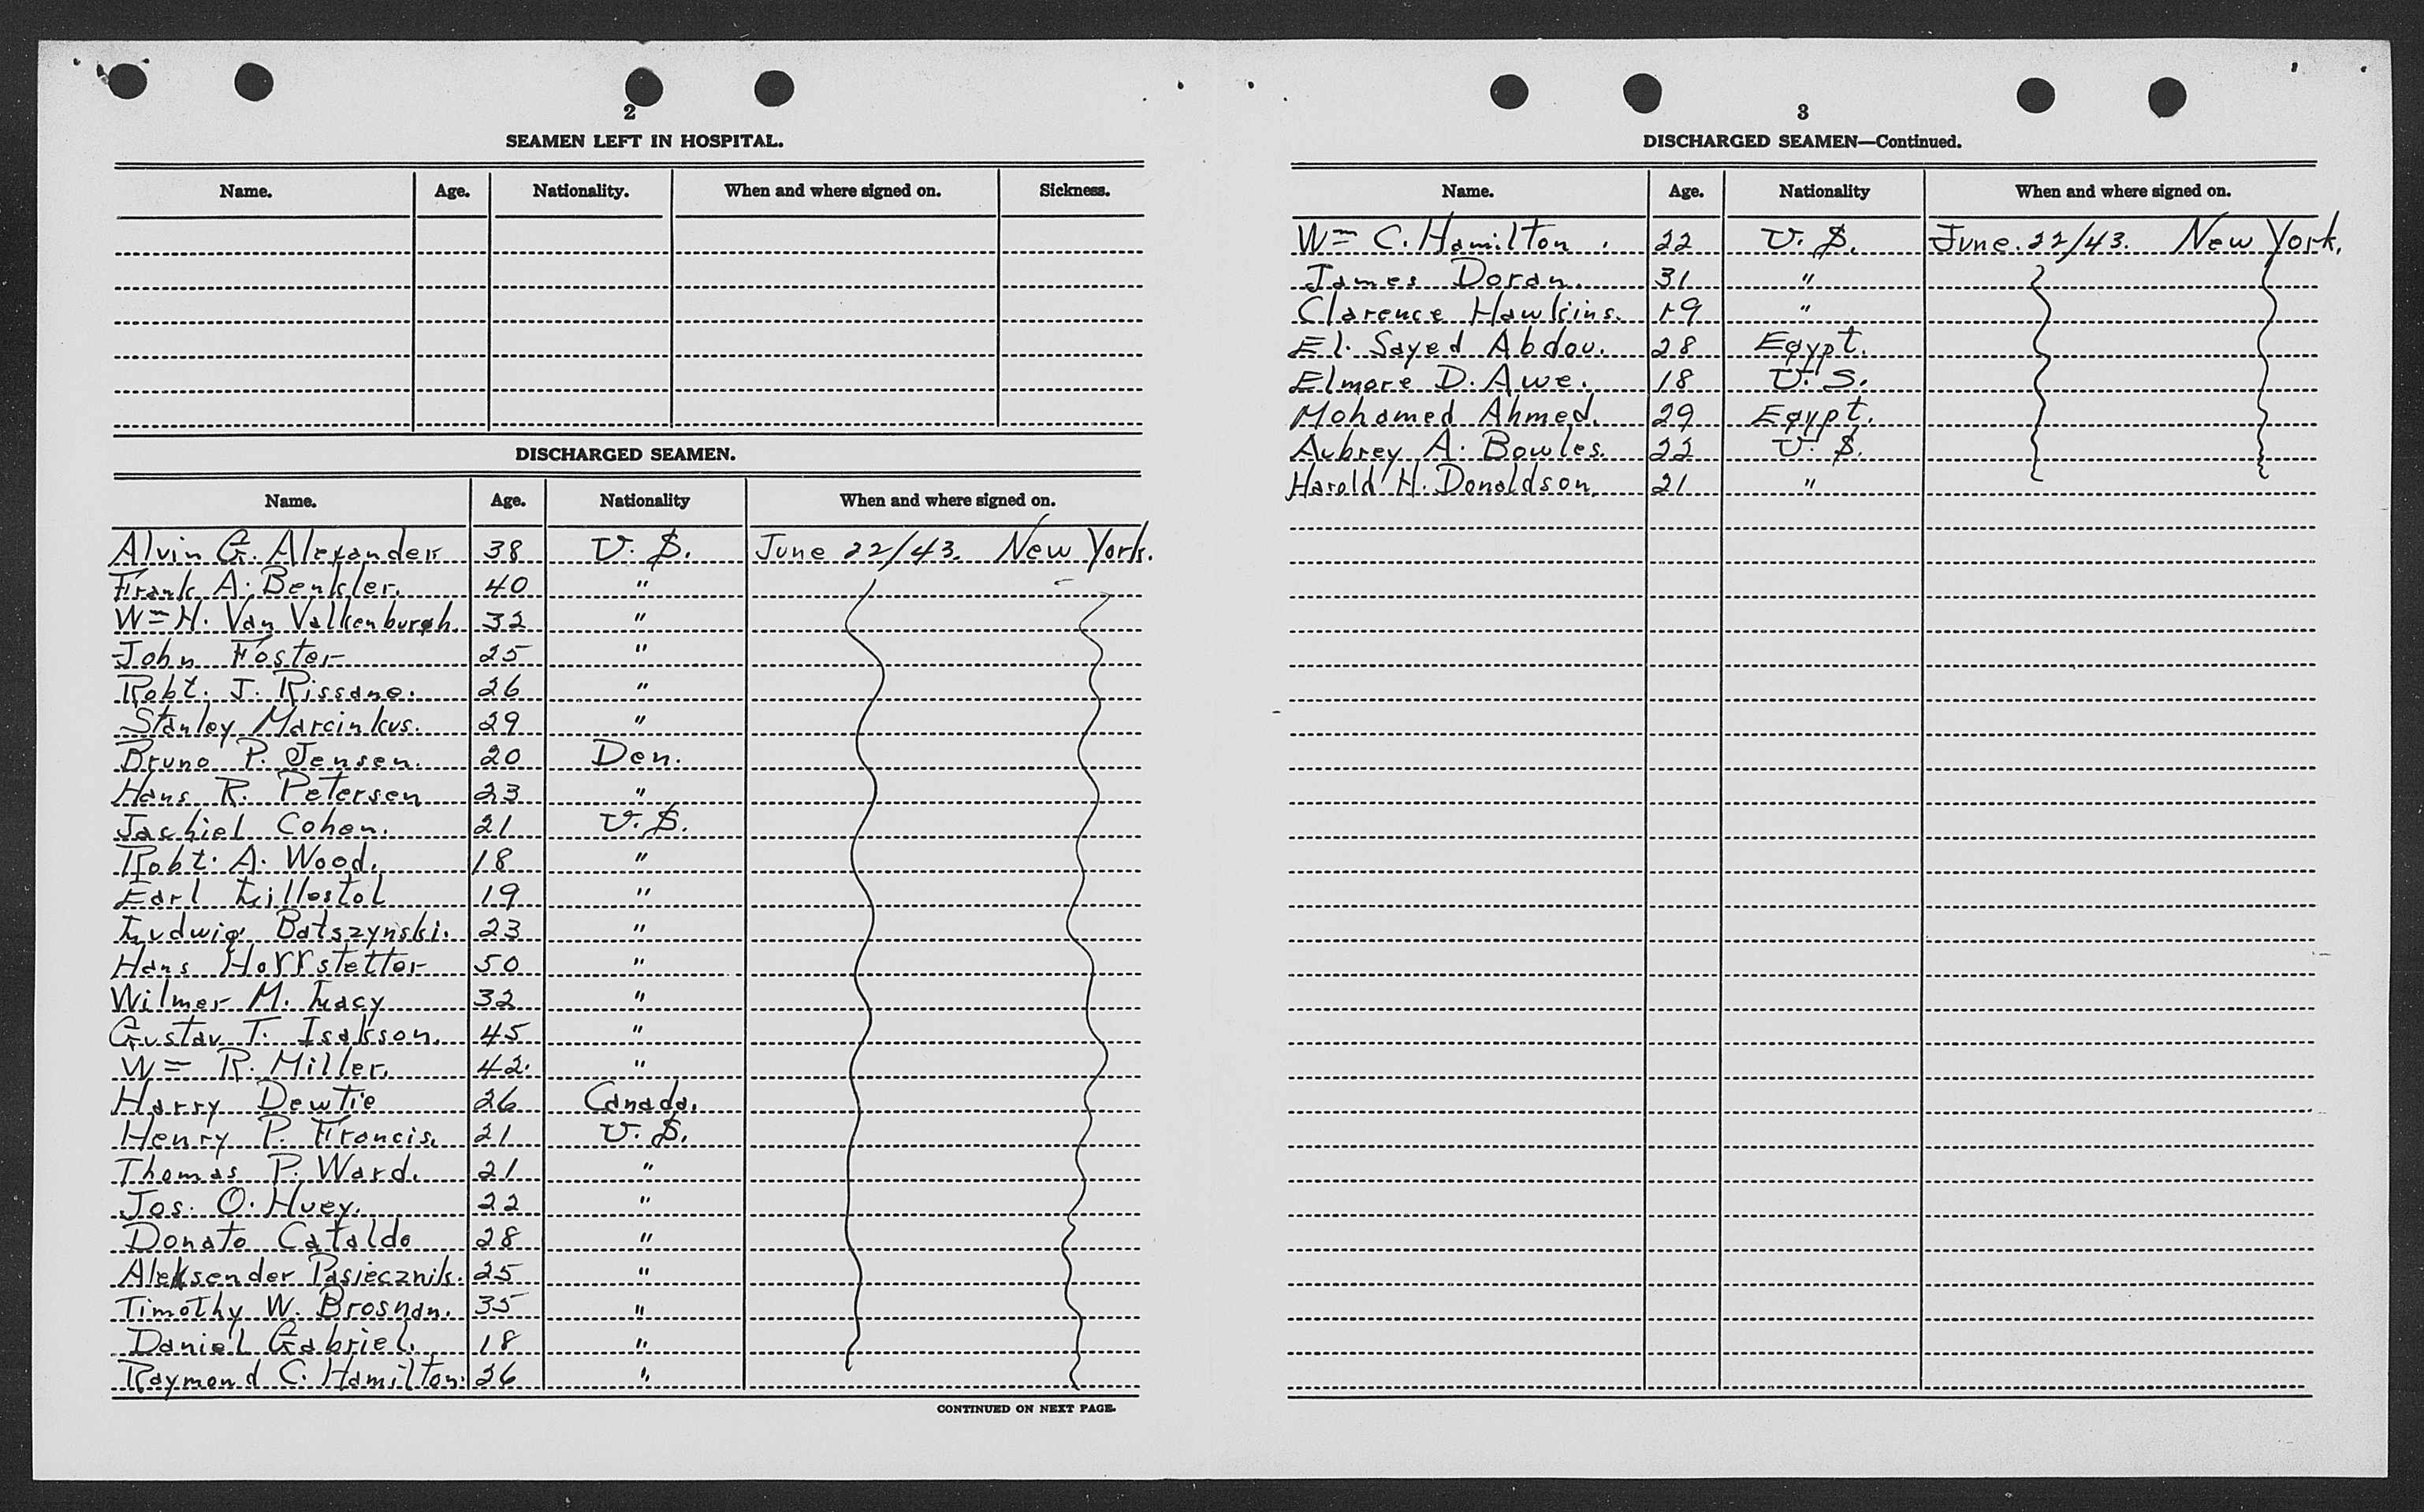 2
SEAMEN LEFT IN HOSPITAL.
Name. Age. Nationality. When and where signed on. Sickness.
DISCHARGED SEAMEN.
Name. Age. Nationality When and where signed on.
Alvin G. Alexander 38 U.S. June 22/43. New York.
Frank A. Benkler. 40 "
Wm H. Van Valkenburgh. 32 "
John Foster 25 "
Robt. J. Rissane. 26 "
Stanley Marcinkus. 29 "
Bruno P. Jensen. 20 Den.
Hans R. Petersen 23 "
Jachiel Cohen. 21 U.S.
Robt. A. Wood. 18 "
Earl Lillostol 19 "
Ludwig Batszynski. 23 "
Hans Horrstetter 50 "
Wilmer M. Lacy 32 "
Gustav T. Isakson. 45 "
Wm R. Miller. 42. "
Harry Dewtie 26 Canada.
Henry P. Francis. 21 U.S.
Thomas P. Ward. 21 "
Jos. O. Huey. 22 "
Donato Cataldo 28 "
Aleksender Pasiecznik. 25 "
Timothy W. Brosnan. 35 "
Daniel Gabriel. 18 "
Raymond C. Hamilton. 26 "
CONTINUED ON NEXT PAGE.
3
DISCHARGED SEAMEN—Continued.
Name. Age. Nationality When and where signed on.
Wm C. Hamilton. 22 U.S. June. 22/43. New York.
James Doran. 31 "
Clarence Hawkins. 19 "
El. Sayed Abdou. 28 Egypt.
Elmore D. Awe. 18 U.S.
Mohamed Ahmed. 29 Egypt.
Aubrey A. Bowles. 22 U.S.
Harold H. Donaldson. 21 "